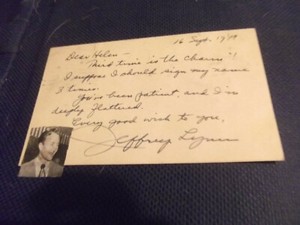 16 Sept. 1979
Dear Helen —
"Third time is the charm"!
I suppose I should sign my name
3 times.
You've been patient, and I'm
deeply flattered.
Every good wish to you,
Jeffrey Lynn